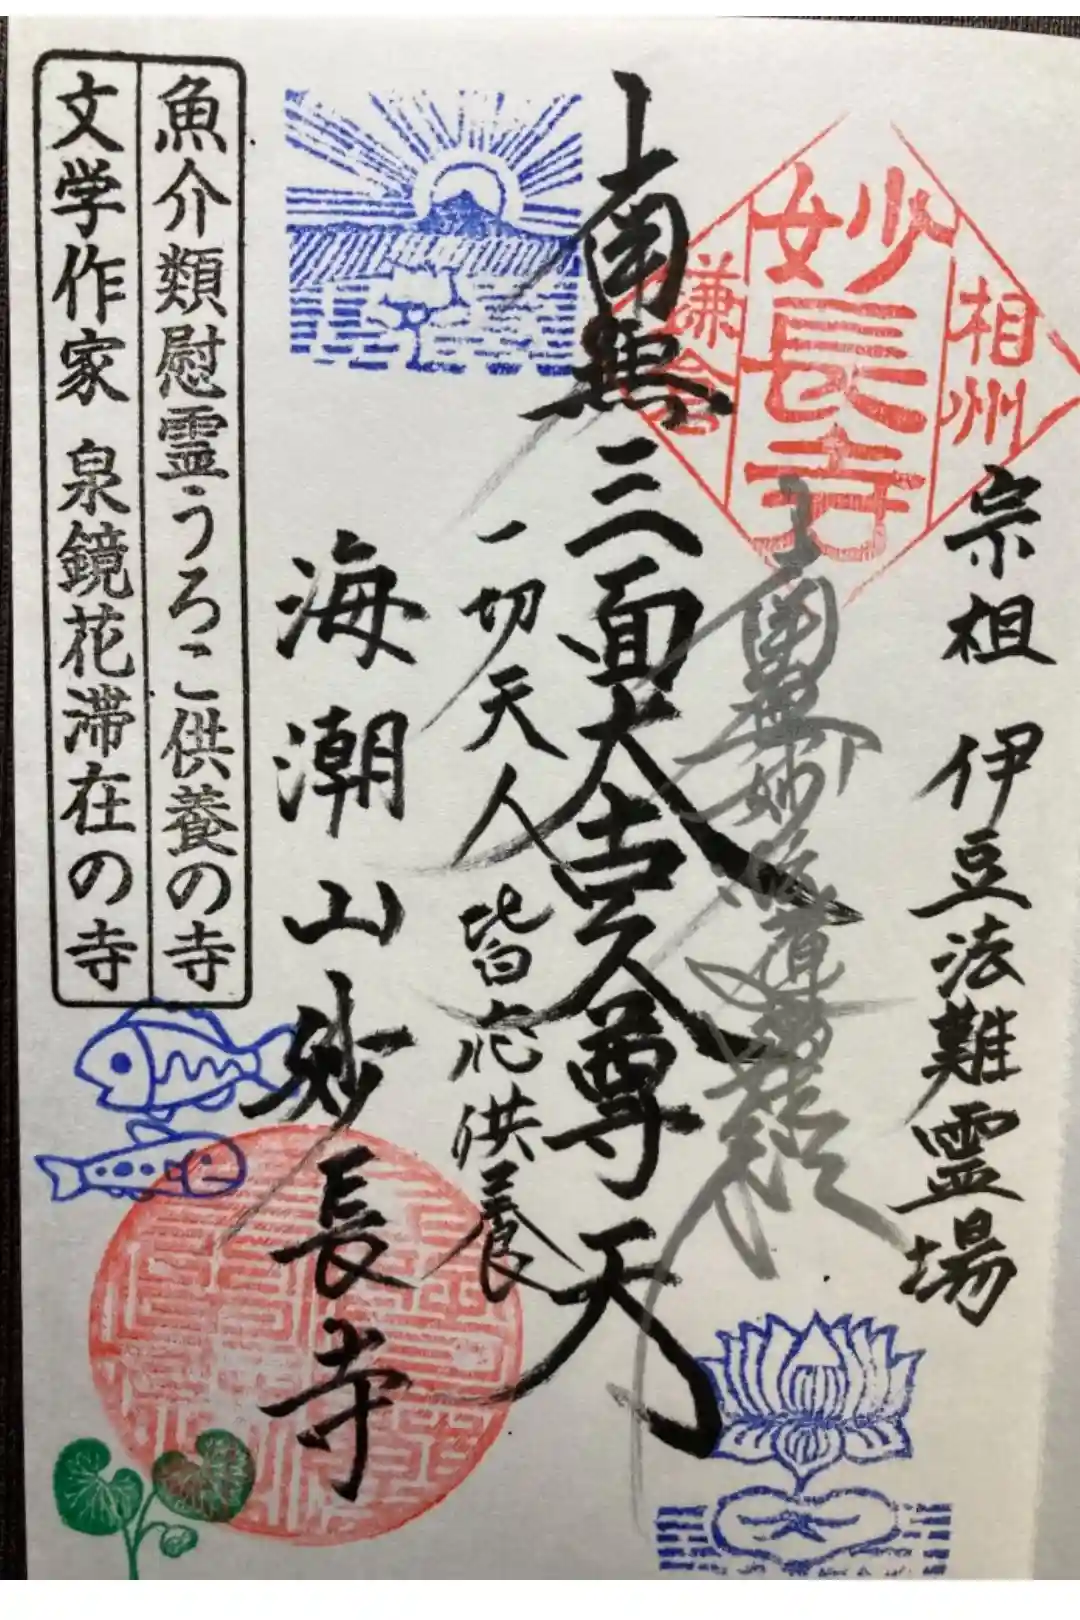 宗祖 伊豆法難霊場
相州
妙長寺
鎌倉
南無妙法蓮華経
南無三面大黒尊天
一切天人皆応供養
海潮山妙長寺
魚介類慰霊うろこ供養の寺
文学作家 泉鏡花滞在の寺